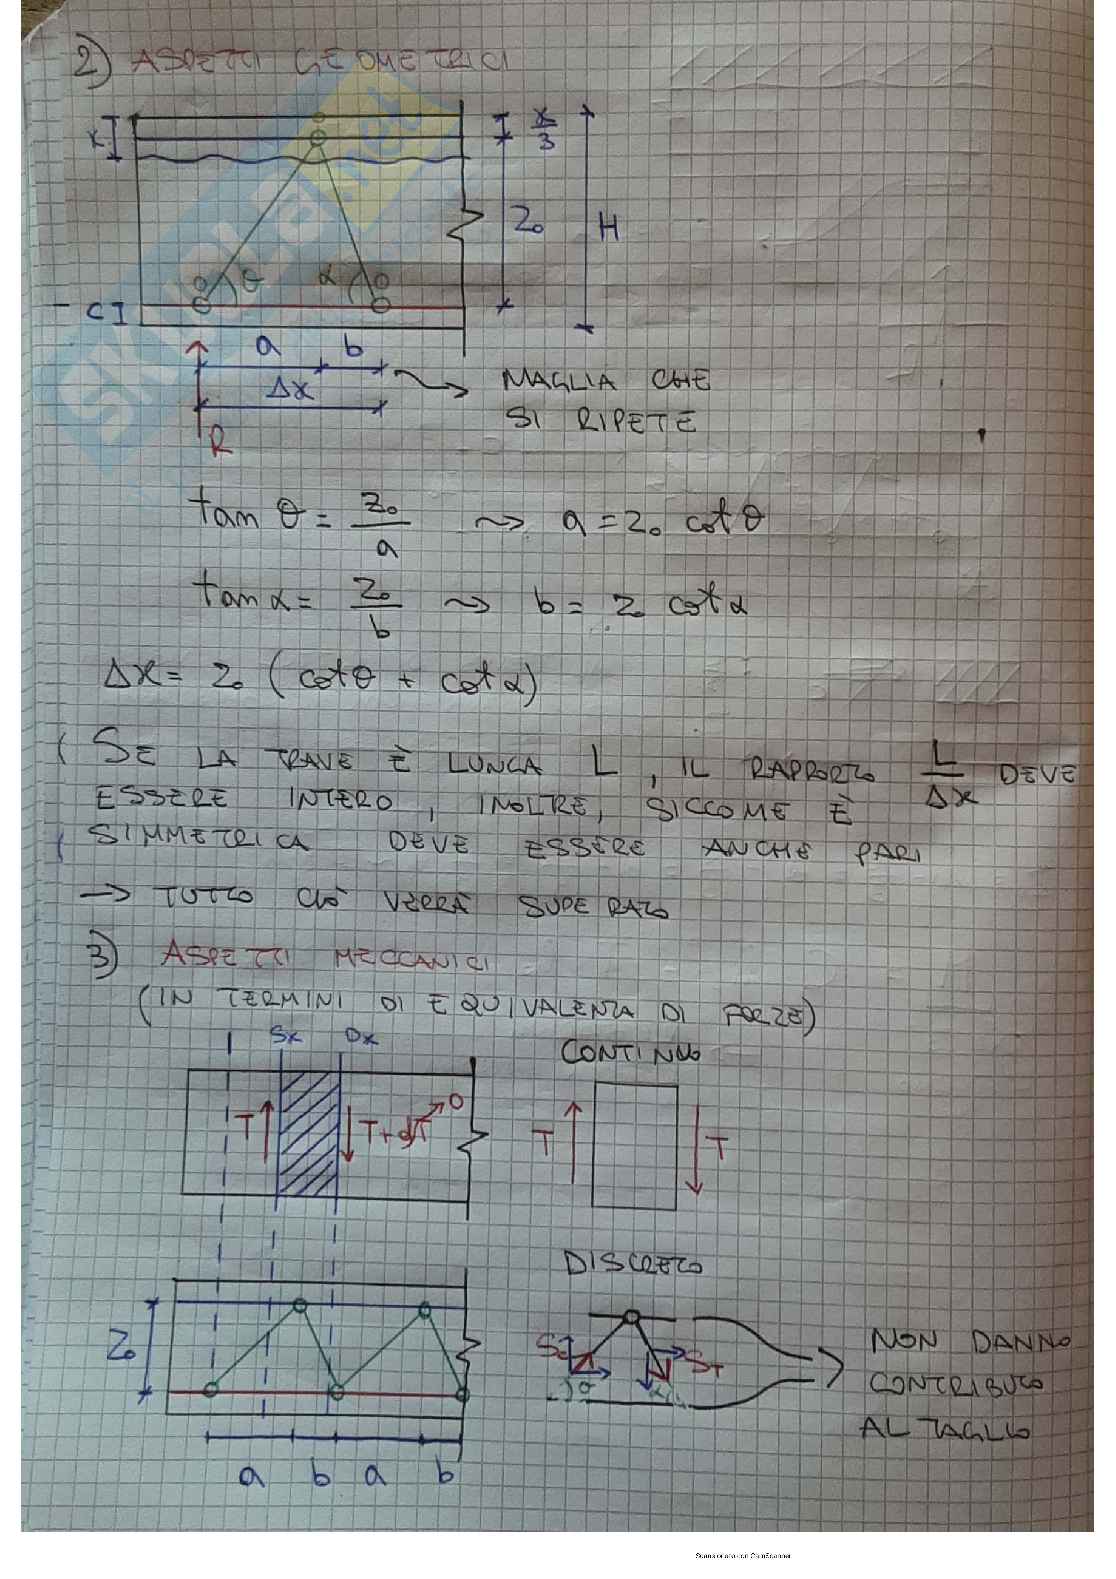 2) ASPETTI GEOMETRICI
x
x/3
Z₀
H
θ
α
c
a
b
Δx
R
MAGLIA CHE
SI RIPETE
tan θ = Z₀/a ⇝ a = Z₀ cot θ
tan α = Z₀/b ⇝ b = Z₀ cot α
Δx = Z₀ (cot θ + cot α)
SE LA TRAVE È LUNGA L, IL RAPPORTO L/Δx DEVE
ESSERE INTERO, INOLTRE, SICCOME È
SIMMETRICA DEVE ESSERE ANCHE PARI
→ TUTTO CIÒ VERRÀ SUPERATO
3) ASPETTI MECCANICI
(IN TERMINI DI EQUIVALENZA DI FORZE)
Sx Dx
CONTINUO
T
T+dT
0
T
T
DISCRETO
Z₀
Sc
θ
ST
α
NON DANNO
CONTRIBUTO
AL TAGLIO
a b a b
SKUOLA.net